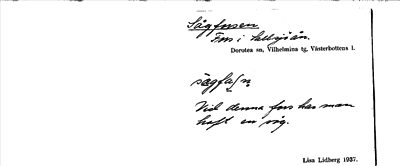 Sågforsen
Fors i Kultsjöån.
Dorotea sn, Vilhelmina tg, Västerbottens l.
Vid denna fors har man
haft en såg.
Lisa Lidberg 1937.